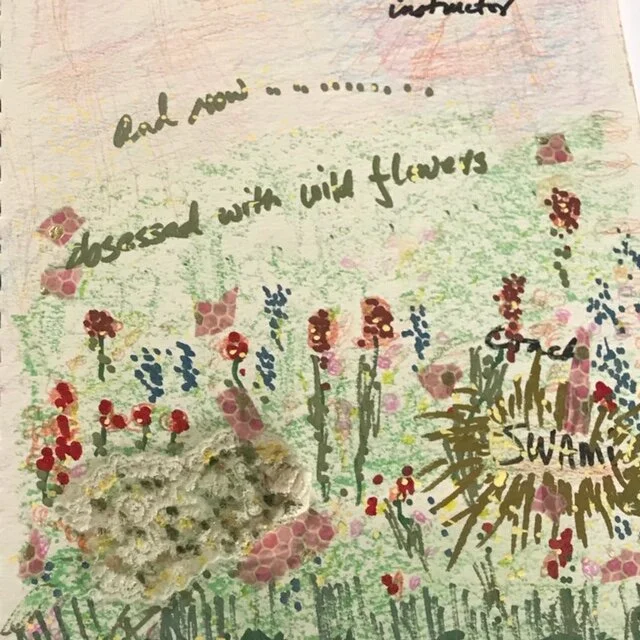 instructor
And now ..........
obsessed with wild flowers
Coach
SWAMI